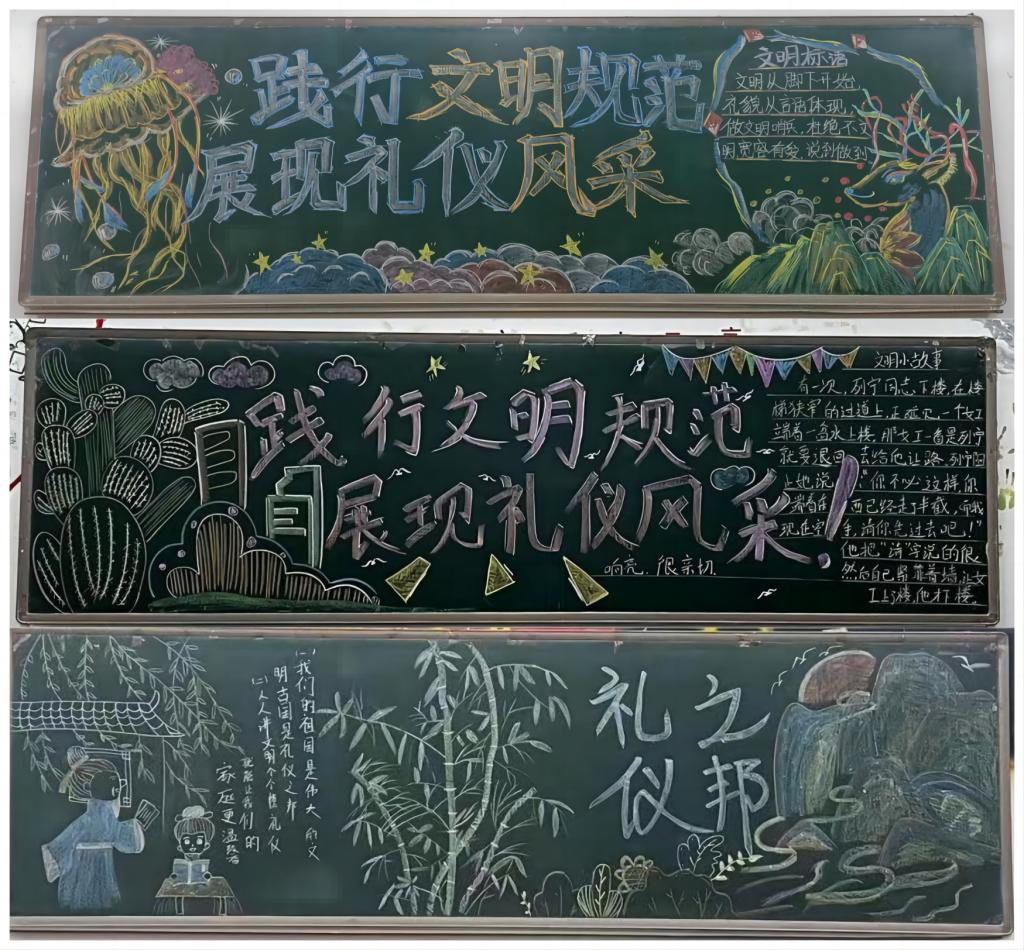 践行文明规范
展现礼仪风采
文明标语
文明从脚下开始
礼貌从言语体现
做文明哨兵,杜绝不文
明宽容有爱,说到做到
践行文明规范
展现礼仪风采!
文明小故事
有一次,列宁同志下楼,在楼
梯狭窄的过道上,正碰见一个女工
端着一盆水上楼,那女工一看是列宁
就要退回去给他让路,列宁阻
止她说:“你不必这样,你
端着东西已经走半截,而我
现在空手,请你先过去吧!”
他把“请”字说的很
响亮,很亲切.
然后自己紧靠着墙,让女
工上了楼,他才下楼。
(一)我们的祖国是伟大的文
明古国是礼仪之邦
(二)人人讲文明个个懂礼仪
就能让我们的
家庭更温馨
礼仪
之邦